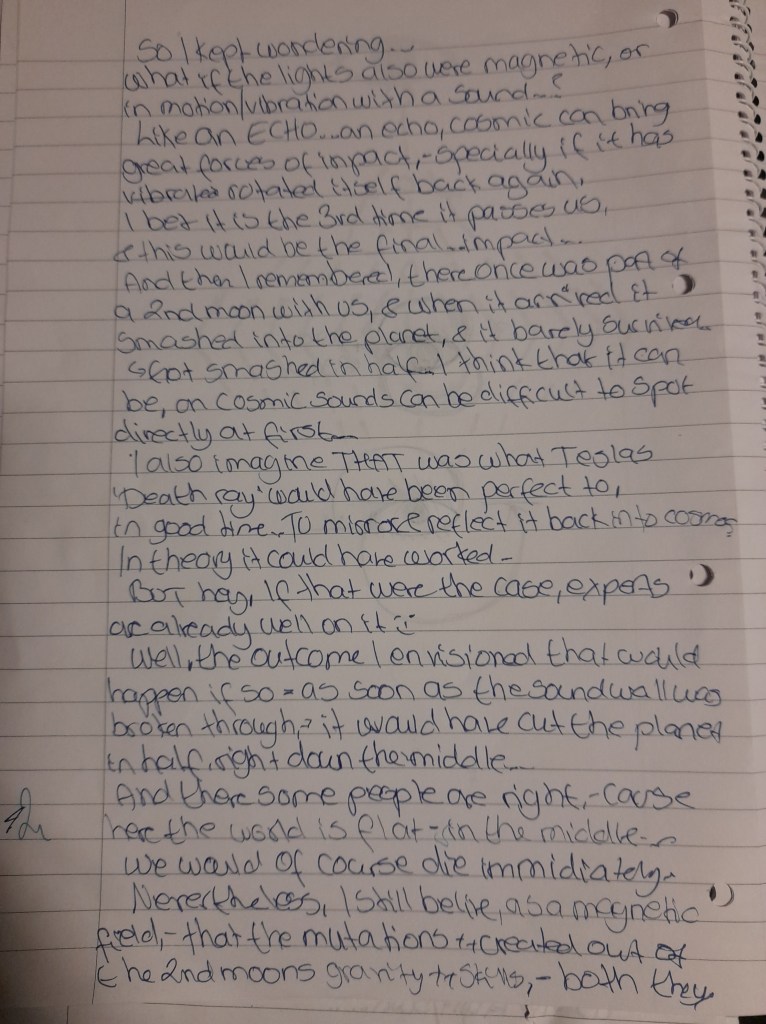 So I kept wondering...
what if the lights also were magnetic, or
in motion/vibration with a sound...?
Like an ECHO...an echo, cosmic can bring
great forces of impact,-specially if it has
rotated itself back again,
I bet it is the 3rd time it passes us,
& this would be the final...impact...
And then I remembered, there once was part of
a 2nd moon with us, & when it arrived it
smashed into the planet, & it barely survived
smashed in half... I think that it can
be, an cosmic sounds can be difficult to spot
directly at first...
I also imagine THAT was what Teslas
'Death ray' would have been perfect to,
in good time... To reflect it back into cosmos
In theory it could have worked-
BUT hey, If that were the case, experts
are already well on it :)
Well, the outcome I envisioned that would
happen if so = as soon as the sandwall was
broken through,= it would have cut the planet
in half, right down the middle...
And there some people are right,-cause
her the world is flat = in the middle...
we would of course die immidiately.
Nevertheless, I still belive, as a magnetic
field,- that the mutations created out of
the 2nd moons gravity skills,- both they